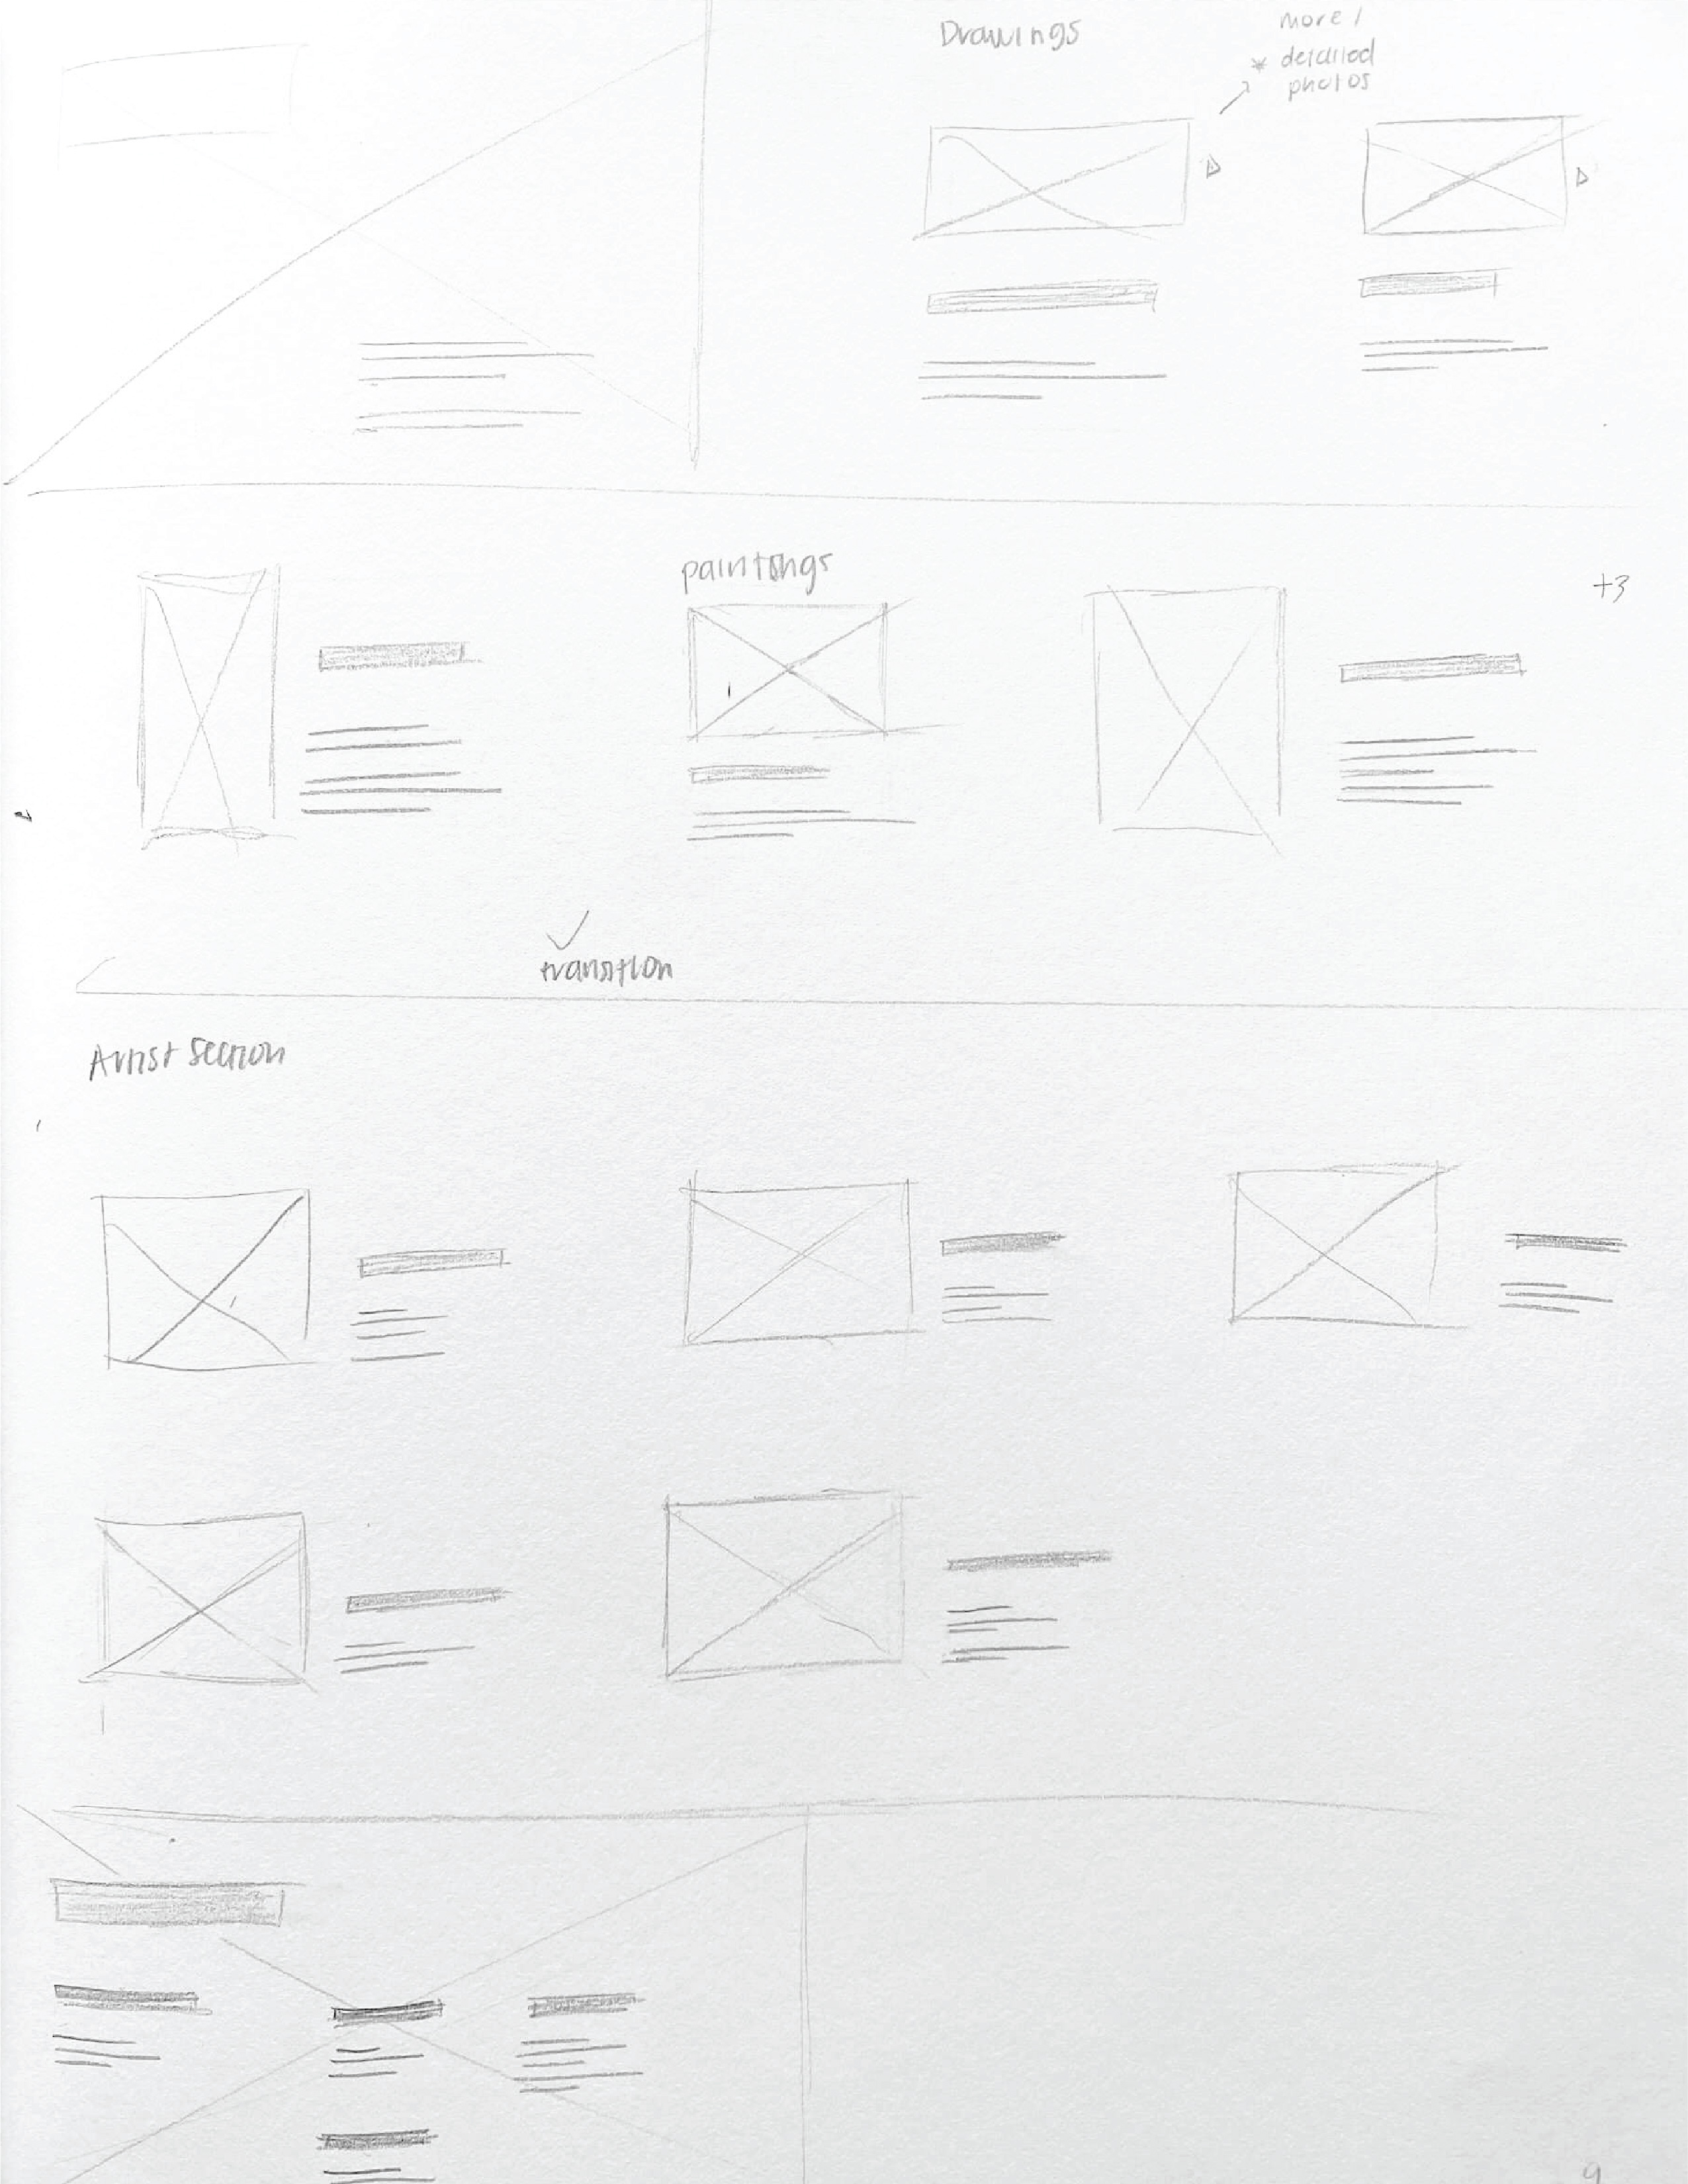 Drawings
more /
* detailed
photos
paintings
+3
transition
Artist Section
9